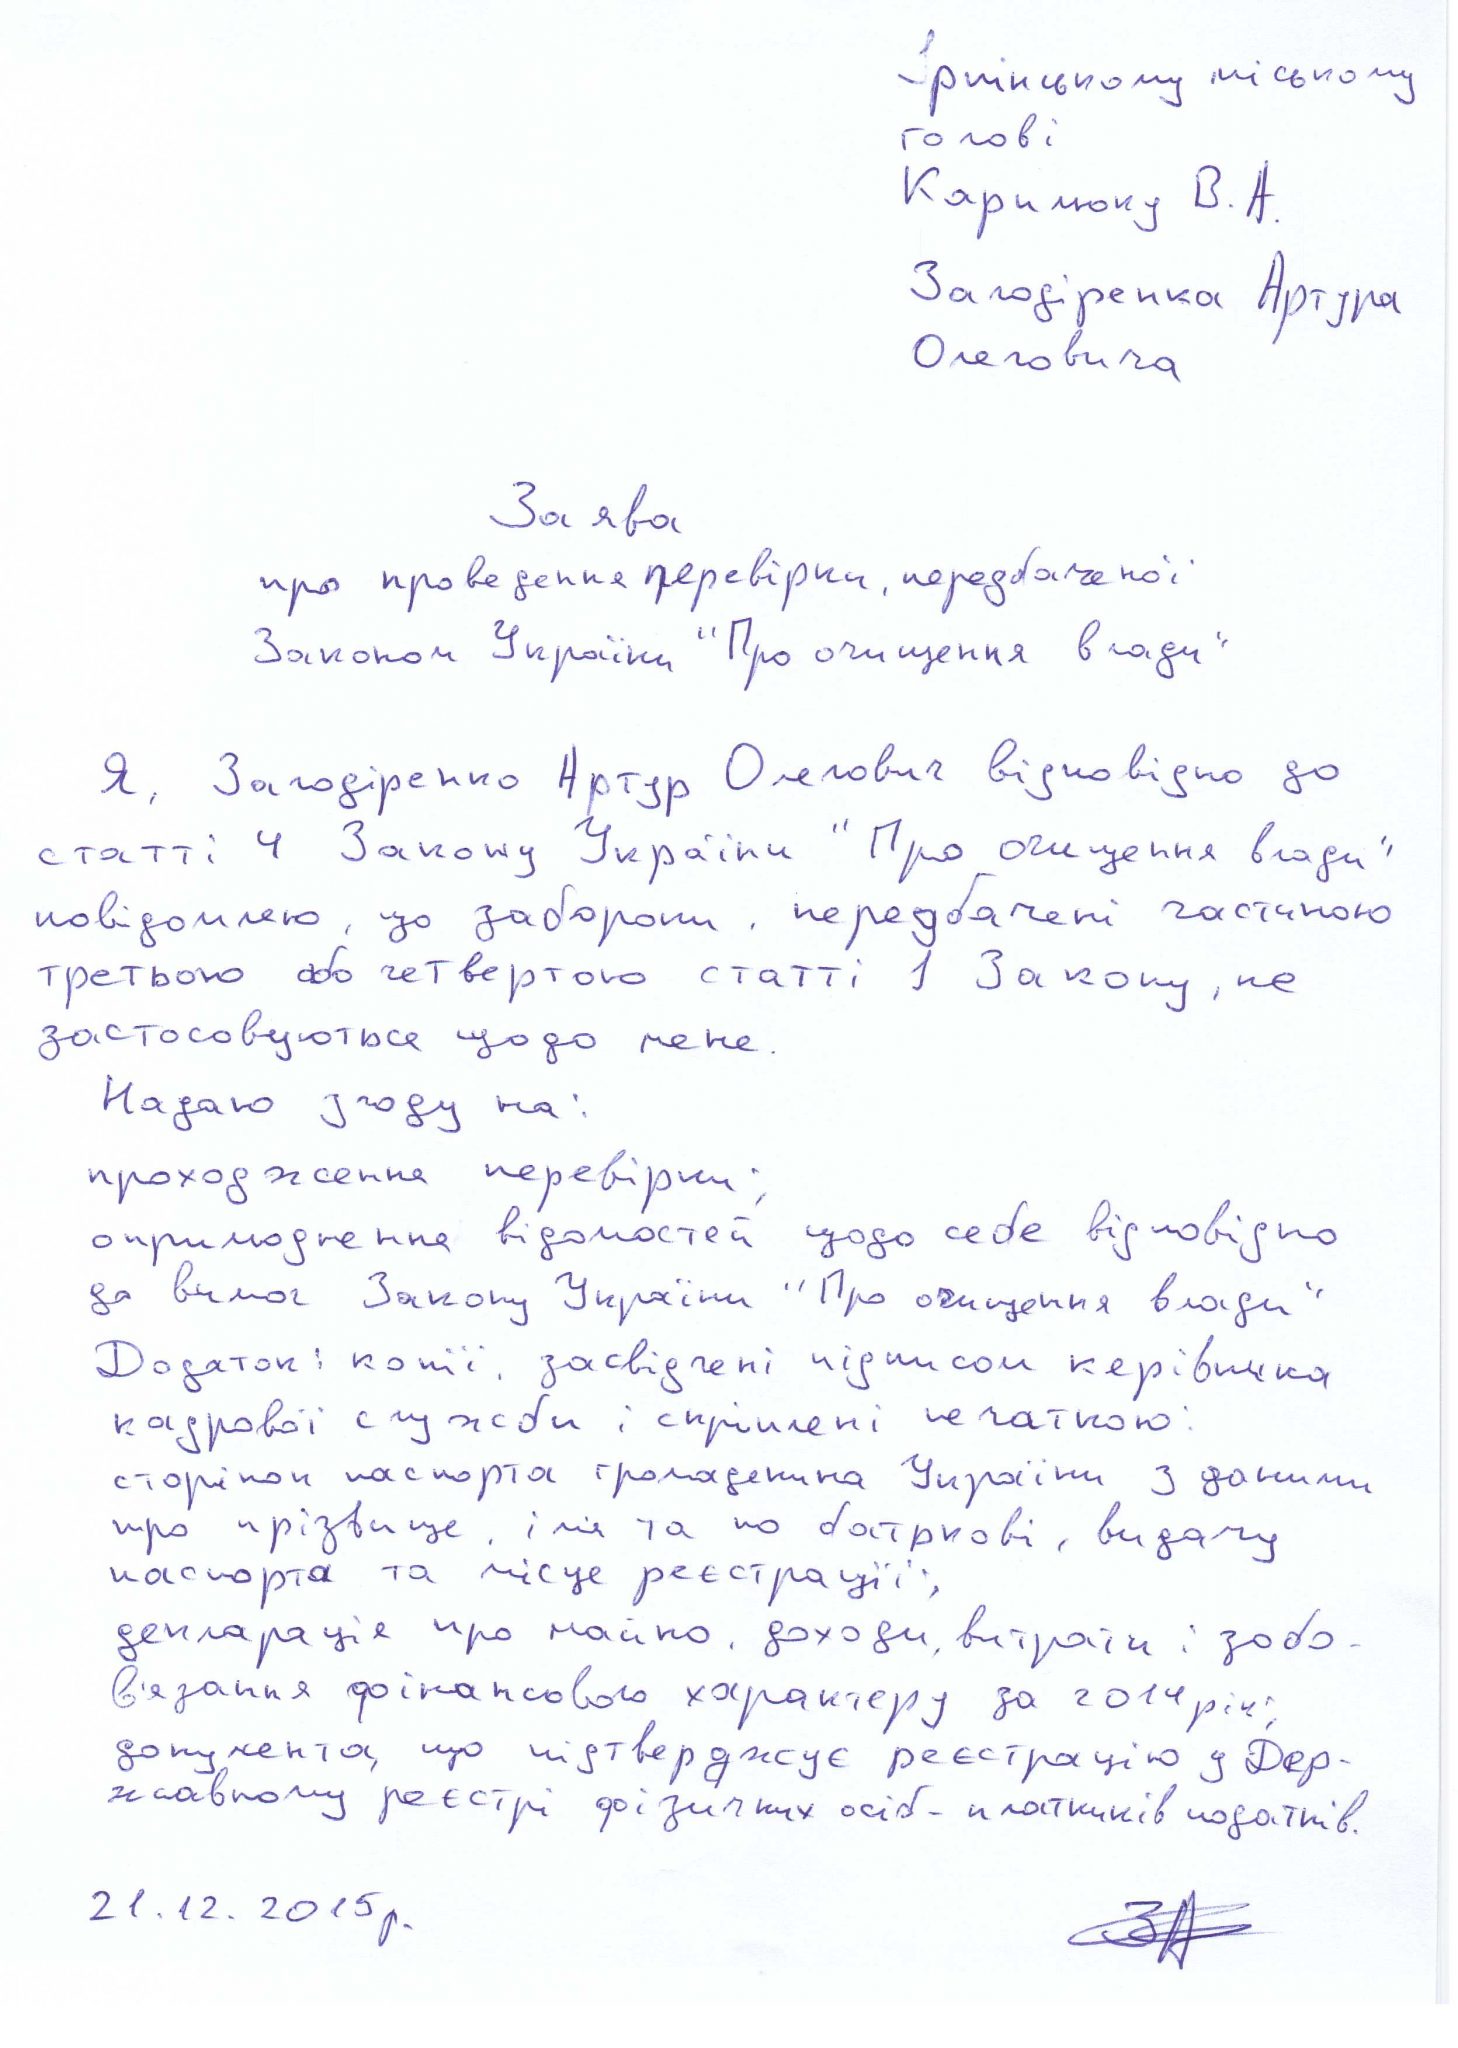 Ірпінському міському
голові
Карплюку В.А.
Загодіренка Артура
Олеговича
Заява
про проведення перевірки, передбаченої
Законом України "Про очищення влади"
Я, Загодіренко Артур Олегович відповідно до
статті 4 Закону України "Про очищення влади"
повідомляю, що заборони, передбачені частиною
третьою або четвертою статті 1 Закону, не
застосовуються щодо мене.
Надаю згоду на:
проходження перевірки;
оприлюднення відомостей щодо себе відповідно
до вимог Закону України "Про очищення влади"
Додаток: копії, засвідчені підписом керівника
кадрової служби і скріплені печаткою:
сторінок паспорта громадянина України з даними
про прізвище, ім'я та по батькові, видачу
паспорта та місце реєстрації;
декларація про майно, доходи, витрати і зобо-
в'язання фінансового характеру за 2014 рік;
документа, що підтверджує реєстрацію у Дер-
жавному реєстрі фізичних осіб-платників податків.
21.12.2015р.
ЗА